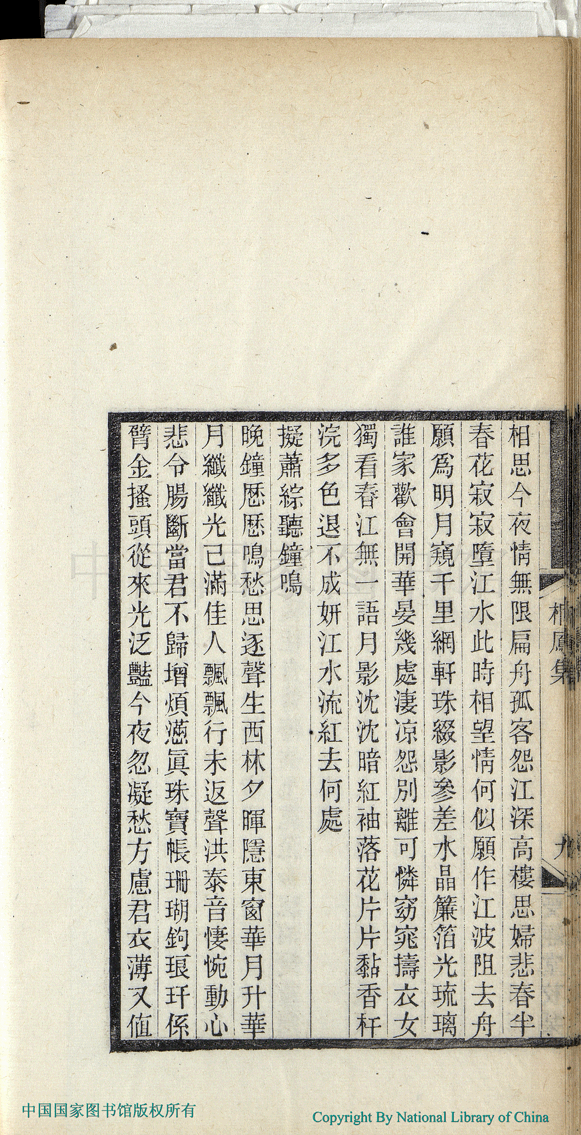 相思今夜情無限扁舟孤客怨江深高樓思婦悲春半
春花寂寂墮江水此時相望情何似願作江波阻去舟
願爲明月窺千里網軒珠綴影參差水晶簾箔光琉璃
誰家歡會開華宴幾處淒涼怨別離可憐窈窕擣衣女
獨看春江無一語月影沈沈暗紅袖落花片片黏香杵
浣多色退不成妍江水流紅去何處
擬蕭綜聽鐘鳴
晚鐘厯厯鳴愁思逐聲生西林夕暉隱東窗華月升華
月纖纖光已滿佳人飄飄行未返聲洪泰音悽惋動心
悲令腸斷當君不歸增煩懣眞珠寶帳珊瑚鉤琅玕係
臂金搔頭從來光泛豔今夜忽凝愁方慮君衣薄又值
集
九
中国国家图书馆版权所有
Copyright By National Library of China